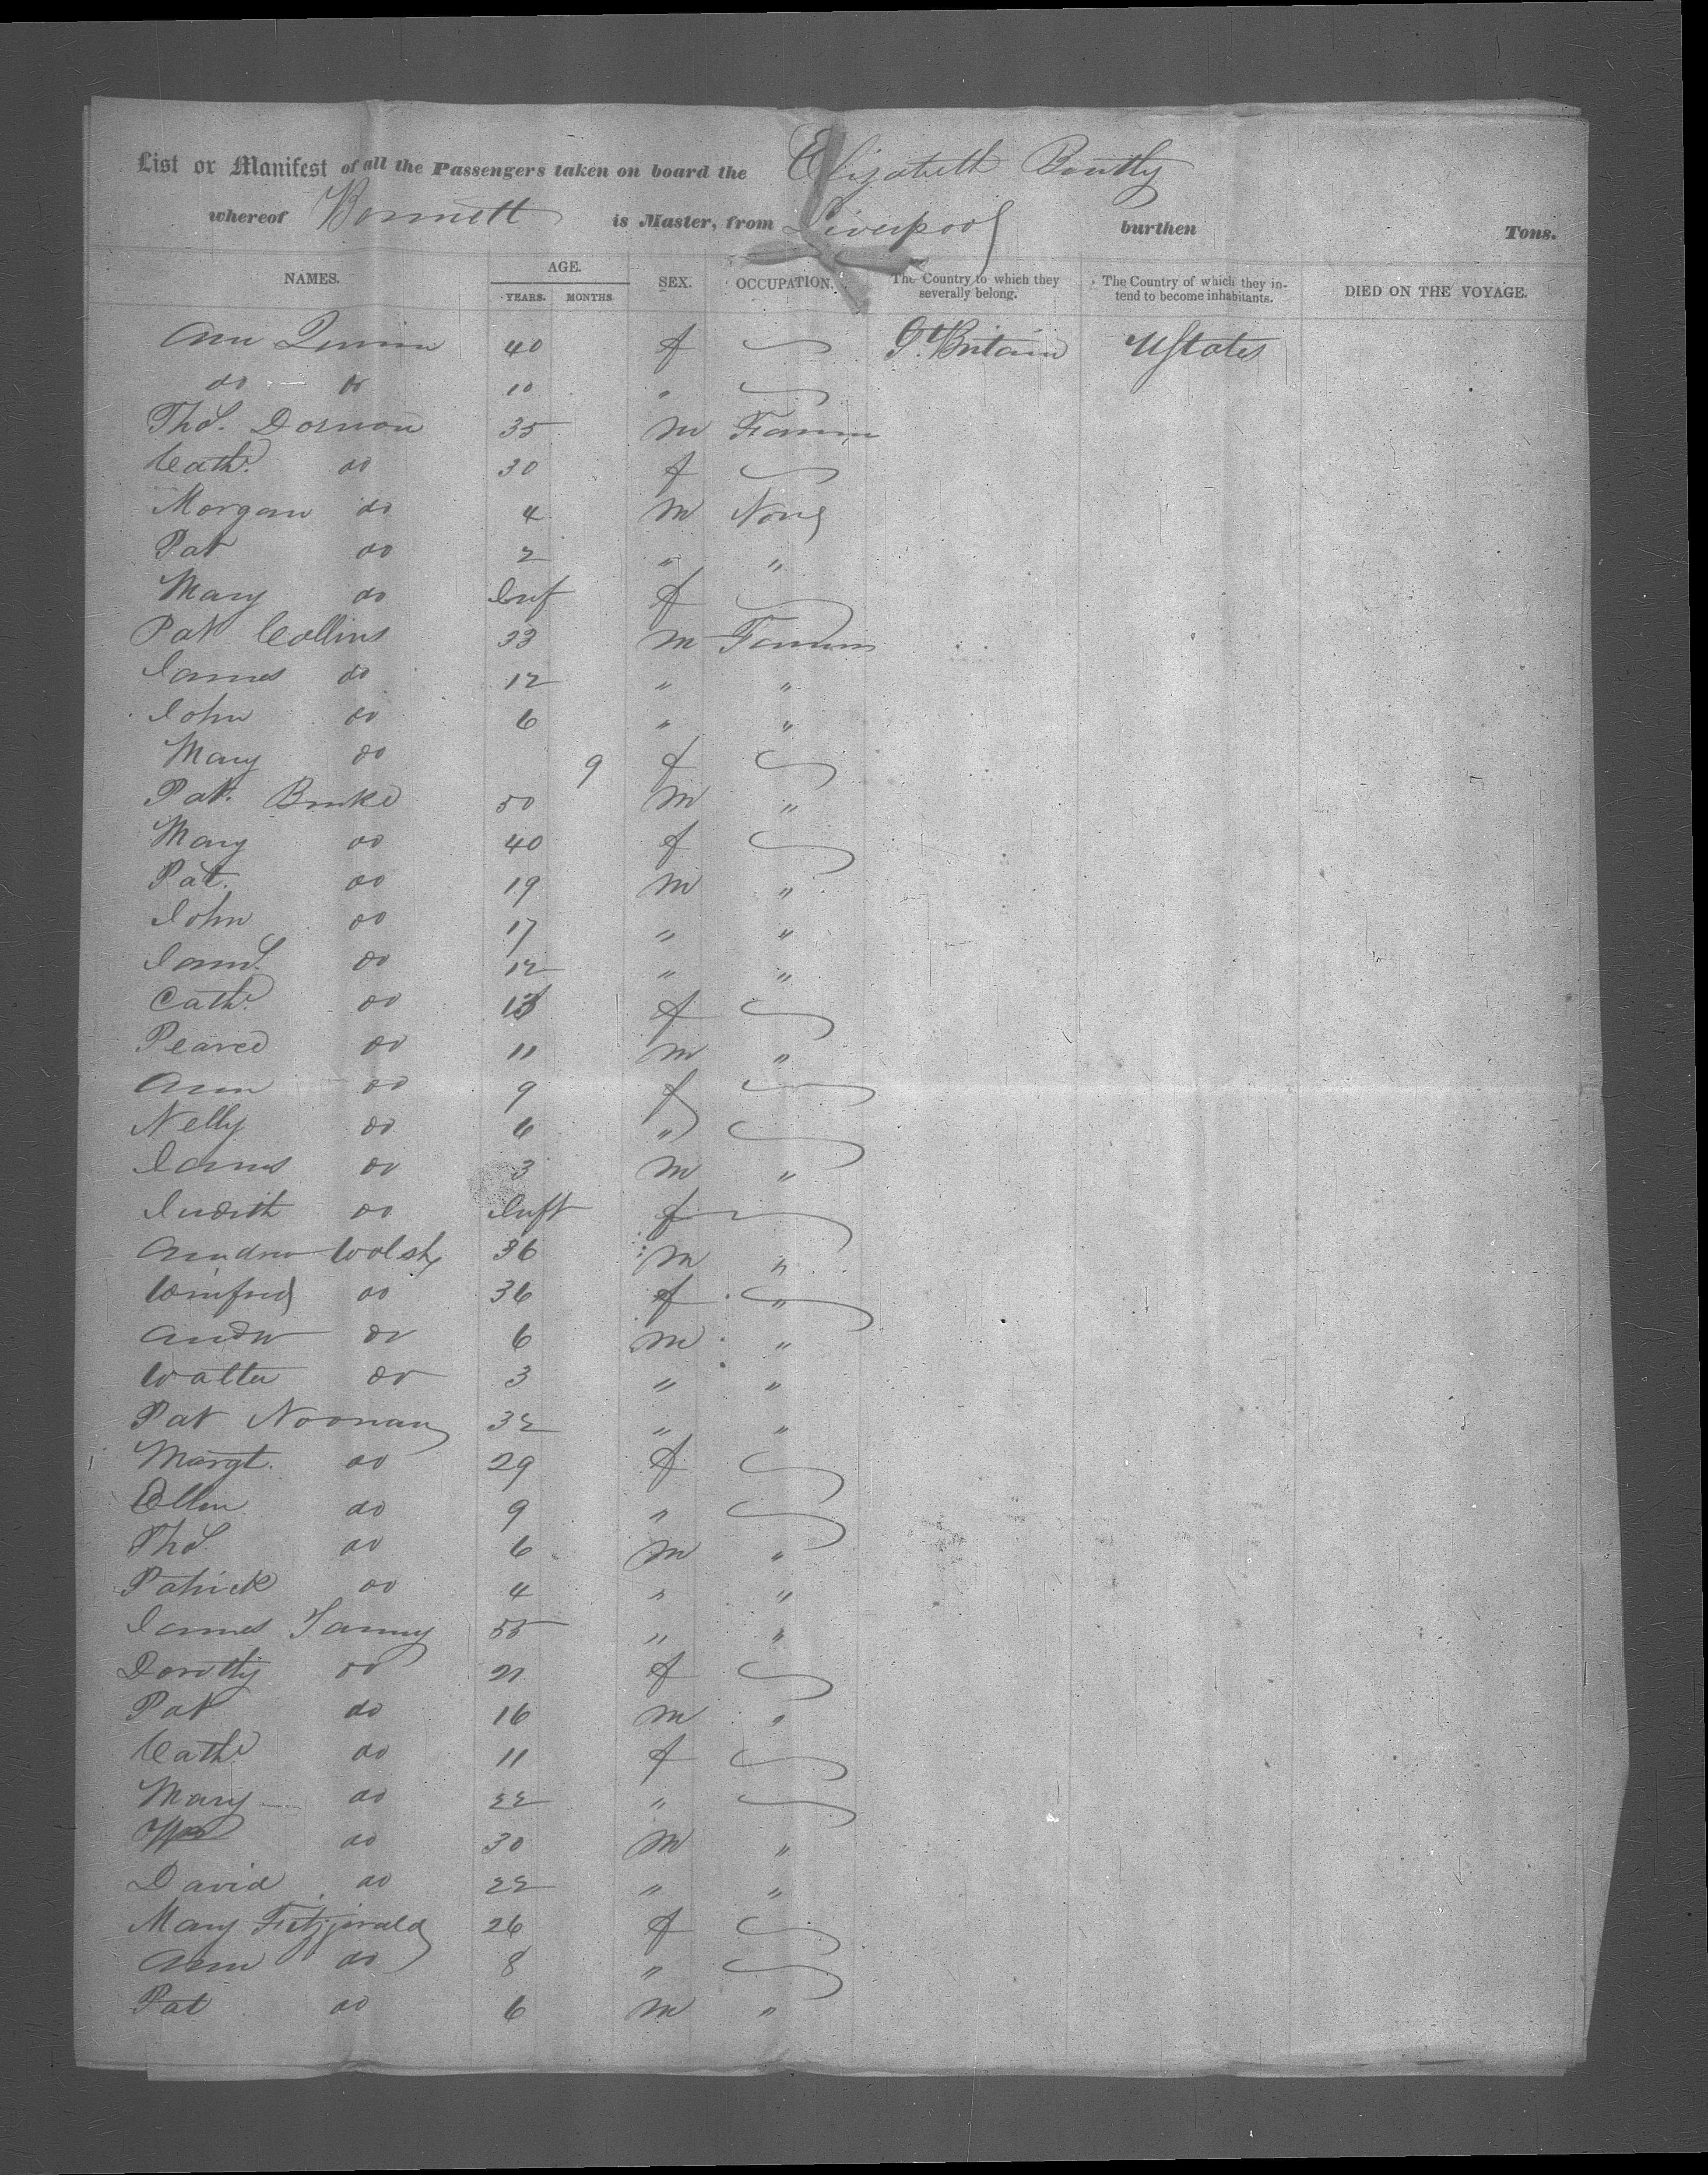 List or Manifest of all the Passengers taken on board the Elizabeth Bently
whereof Bennett is Master, from Liverpool burthen Tons.
NAMES. AGE. YEARS. MONTHS. SEX. OCCUPATION. The Country to which they severally belong. The Country of which they intend to become inhabitants. DIED ON THE VOYAGE.
Ann 40 f Gt. Britain UStates
do do 10 "
Thos. Dornon 35 m Farmer
Cathe. do 30 f
Morgan do 4 m None
Pat do 2 " "
Mary do Inf f
Pat Collins 33 m Farmer
James do 12 " "
John do 6 " "
Mary do 9 f
Pat. Burke 50 m "
Mary do 40 f
Pat. do 19 m "
John do 17 " "
Jams. do 12 " "
Cathe. do 13 f
Pearce do 11 m "
Ann do 9 f
Nelly do 6 "
James do 3 m "
Judith do Inft f
Andrew Walsh 36 m "
Winfred do 36 f "
Andw do 6 m "
Walter do 3 " "
Pat Noonan 32 " "
Margt. do 29 f
Ellen do 9 "
Thos. do 6 m "
Patrick do 4 " "
James 55 " "
Dorothy do 21 f
Pat do 16 m "
Cathe do 11 f
Mary do 22 "
Wm do 30 m "
David do 22 " "
Mary Fitzjerald 26 f
Ann do 8 "
Pat do 6 m "